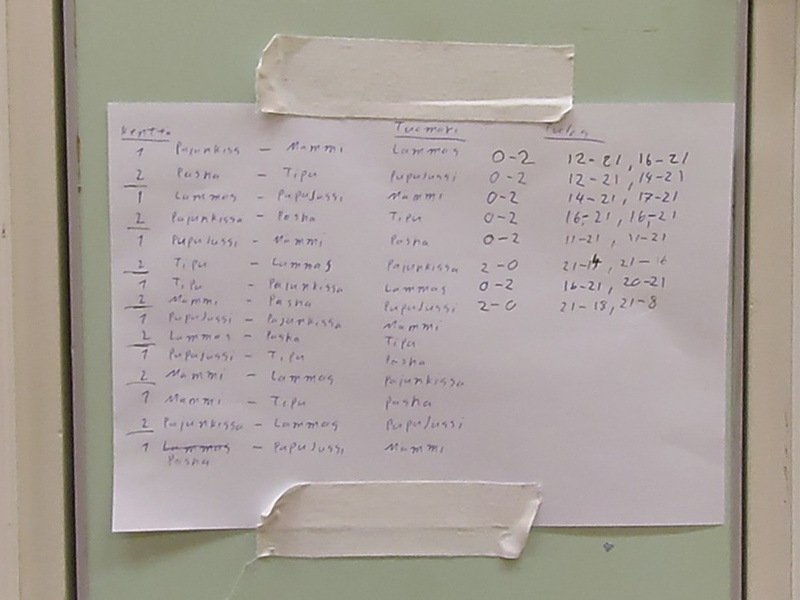 Kenttä Tuomari Tulos
1 Pajunkiss - Mammi Lammas 0-2 12-21, 16-21
2 Pasha - Tipu Pupujussi 0-2 12-21, 14-21
1 Lammas - Pupujussi Mammi 0-2 14-21, 17-21
2 Pajunkissa - Pasha Tipu 0-2 16-21, 16-21
1 Pupujussi - Mammi Pasha 0-2 11-21, 11-21
2 Tipu - Lammas Pajunkissa 2-0 21-14, 21-16
1 Tipu - Pajunkissa Lammas 0-2 16-21, 20-21
2 Mammi - Pasha Pupujussi 2-0 21-18, 21-8
1 Pupujussi - Pajunkissa Mammi
2 Lammas - Pasha Tipu
1 Pupujussi - Tipu Pasha
2 Mammi - Lammas Pajunkissa
1 Mammi - Tipu Pasha
2 Pajunkissa - Lammas Pupujussi
1 Lammas - Pupujussi Mammi
Pasha